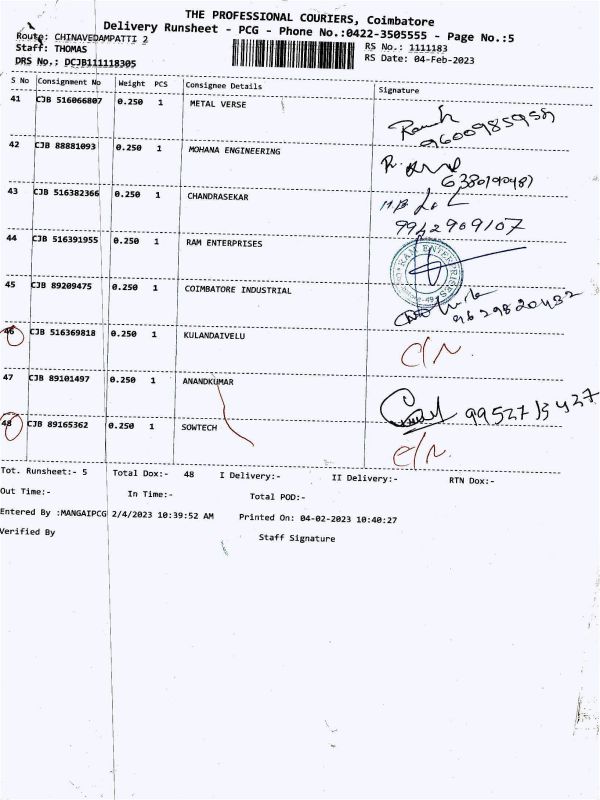 THE PROFESSIONAL COURIERS, Coimbatore
Delivery Runsheet - PCG - Phone No.:0422-3505555 - Page No.:5
Route: CHINAVEDAMPATTI 2
RS No.: 1111183
Staff: THOMAS
RS Date: 04-Feb-2023
DRS No,: DCJB111118305
S No Consignment No Weight PCS Consignee Details Signature
41 CJB 516066807 0.250 1 METAL VERSE
9600985958
42 CJB 88881093 0.250 1 MOHANA ENGINEERING
43 CJB 516382366 0.250 1 CHANDRASEKAR
9942909107
44 CJB 516391955 0.250 1 RAM ENTERPRISES
RAM ENTERPRISES
45 CJB 89209475 0.250 1 COIMBATORE INDUSTRIAL
9629820432
46 CJB 516369818 0.250 1 KULANDAIVELU
C/N.
47 CJB 89101497 0.250 1 ANANDKUMAR
9952713427
48 CJB 89165362 0.250 1 SOWTECH
C/N.
Tot. Runsheet:- 5 Total Dox:- 48 I Delivery:- II Delivery:- RTN Dox:-
Out Time:- In Time:- Total POD:-
Entered By :MANGAIPCG 2/4/2023 10:39:52 AM Printed On: 04-02-2023 10:40:27
Verified By Staff Signature